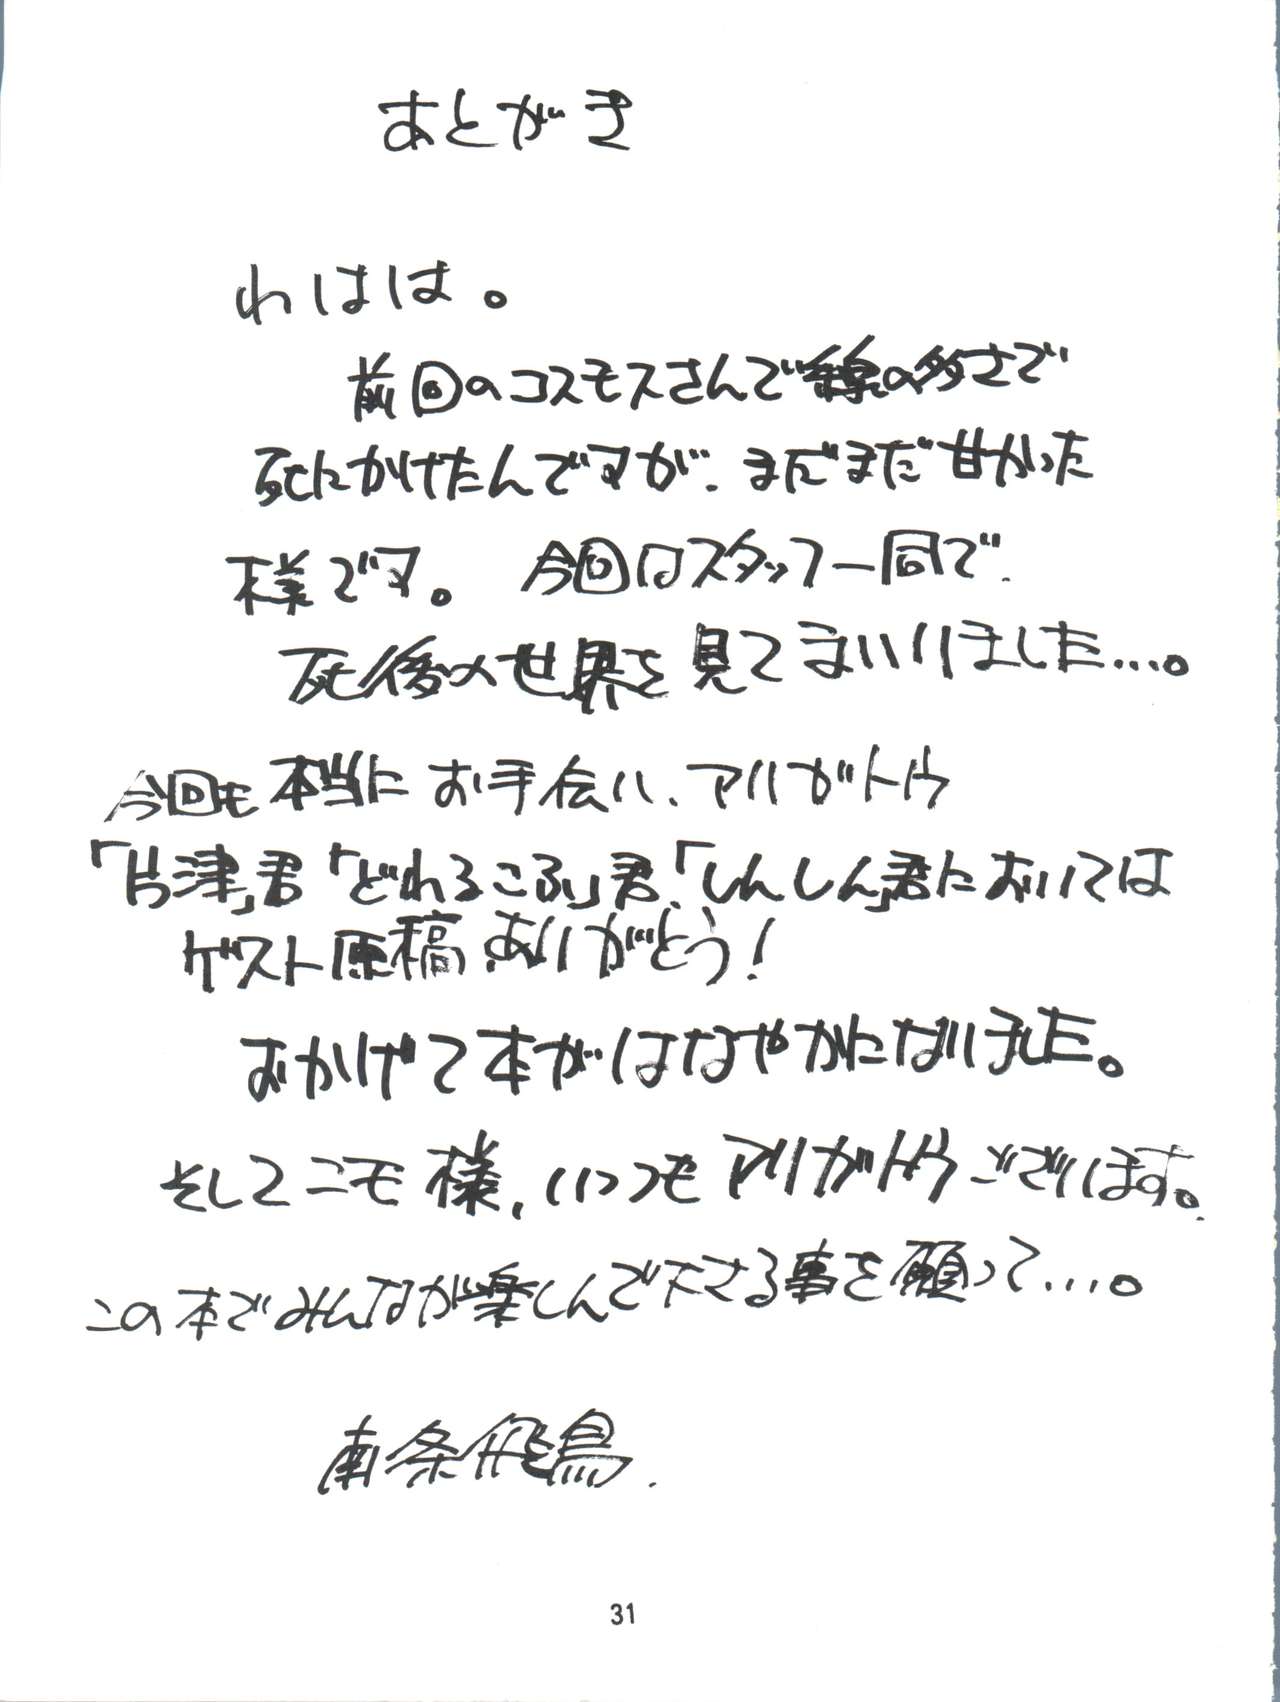 あとがき
わはは。
前回のコスモスさんで線の多さで
死にかけたんですが、まだまだ甘かった
様です。 今回はスタッフ一同で、
死後の世界を見てまいりました…。
今回も本当にお手伝い、アリガトウ
「片津」君「どれろこふ」君、「しんしん」君においては
ゲスト原稿ありがとう!
おかげで本がはなやかになりました。
そしてニモ様、いつもアリガトウございます。
この本でみんなが楽しんで下さる事を願って…。
南条飛鳥.
31